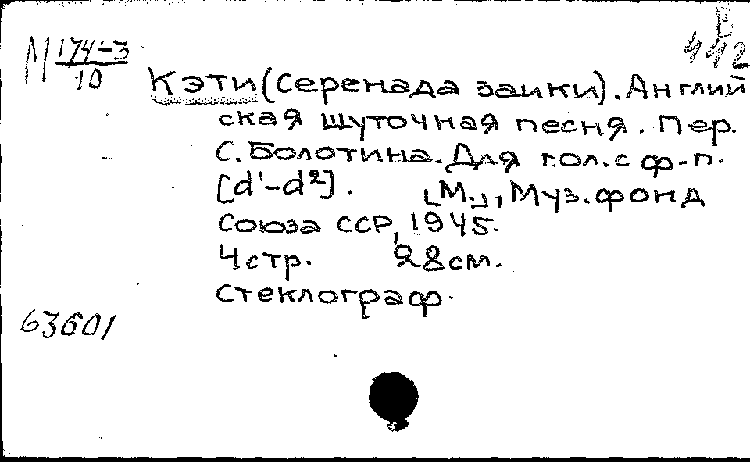 М 174-3
10
442
Кэти (Серенада заики). Англий
ская шуточная песня. Пер.
С. Болотина. Для гол. с ф-п.
[d¹-d²]. [М.], Муз. фонд
Союза ССР, 1945.
4 стр. 28 см.
Стеклограф.
63601